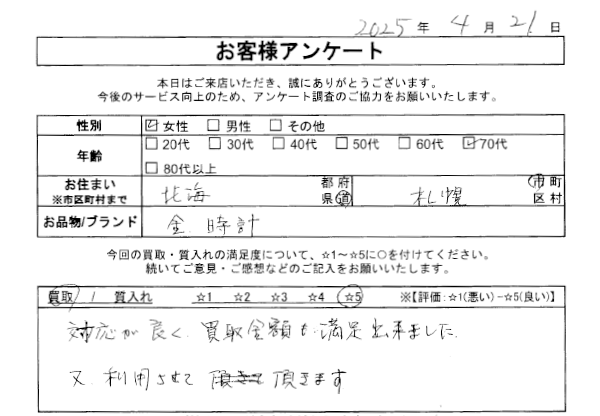 2025年 4月 21日
お客様アンケート
本日はご来店いただき、誠にありがとうございます。
今後のサービス向上のため、アンケート調査のご協力をお願いいたします。
性別 ☑女性 □男性 □その他
年齢 □20代 □30代 □40代 □50代 □60代 ☑70代
□80代以上
お住まい ※市区町村まで 北海 都府県道 札幌 市町区村
お品物/ブランド 金 時計
今回の買取・質入れの満足度について、☆1～☆5に○を付けてください。
続いてご意見・ご感想などのご記入をお願いいたします。
買取 / 質入れ ☆1 ☆2 ☆3 ☆4 ☆5 ※【評価:☆1(悪い)-☆5(良い)】
対応が良く、買取金額も満足出来ました。
又、利用させて頂きます